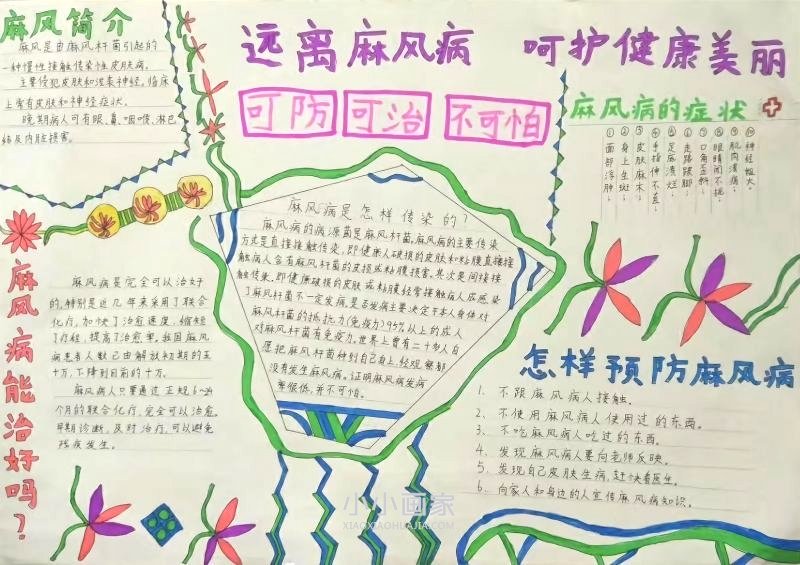 远离麻风病 呵护健康美丽
可防 可治 不可怕
麻风简介
麻风是由麻风杆菌引起的
一种慢性接触传染性皮肤病。
主要侵犯皮肤和周围神经。临床
上常有皮肤和神经症状。
晚期病人可有眼、鼻、咽喉、淋巴
结及内脏损害。
麻风病的症状
①面部浮肿;
②身上生斑;
③皮肤麻木;
④手指伸不直;
⑤足底溃烂
⑥走路跛脚
⑦口角歪斜;
⑧眼睛闭不拢;
⑨肌肉溃疡;
⑩神经粗大。
麻风病是怎样传染的?
麻风病的病源菌是麻风杆菌。麻风病的主要传染
方式是直接接触传染,即健康人破损的皮肤和粘膜直接接
触病人含有麻风杆菌的皮损或粘膜损害。其次是间接接
触传染。即健康破损的皮肤或粘膜经常接触病人应感染
了麻风杆菌不一定发病,是否发病主要决定于本人身体对
麻风杆菌的抵抗力(免疫力)95%以上的成人
对麻风杆菌有免疫力。世界上曾有二十多人自
愿把麻风杆菌种到自己身上,经观察都
没有发生麻风病。证明麻风病发病
率很低,并不可怕。
麻风病能治好吗?
麻风病是完全可以治好
的,特别是近几年来采用了联合
化疗,加快了治愈速度,缩短
了疗程,提高了治愈率。我国麻风
病患者人数已由解放初期的五
十万,下降到目前的十万。
麻风病人只要通过正规6~24
个月的联合化疗,完全可以治愈。
早期诊断,及时治疗,可以避免
残疾发生。
怎样预防麻风病
1. 不跟麻风病人接触。
2. 不使用麻风病人使用过的东西。
3. 不吃麻风病人吃过的东西。
4. 发现麻风病人要向老师反映。
5. 发现自己皮肤生病,赶快看医生。
6. 向家人和身边的人宣传麻风病知识。
小小画家
XIAOXIAOHUAJIA.COM